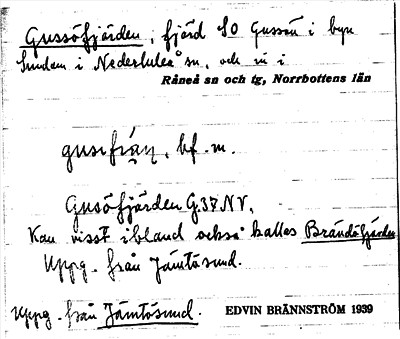 Gussöfjärden, fjärd SO Gussön i byn
Sundom i Nederluleå sn, och in i
Råneå sn och tg, Norrbottens län
bf. m.
Gusöfjärden G.37.NV.
Kan visst ibland också kallas Brändöfjärden
Uppg. från Jämtösund.
Uppg. från Jämtösund.
EDVIN BRÄNNSTRÖM 1939